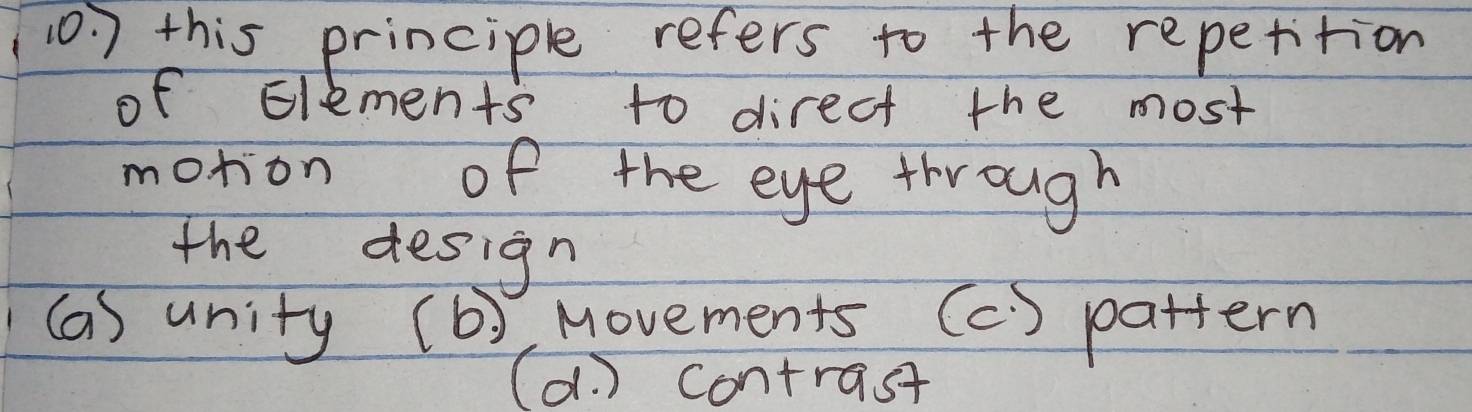 10.) this principle refers to the repetition
of Elements to direct the most
motion of the eye through
the design
(a) unity (b.) Movements (c.) pattern
(d.) contrast